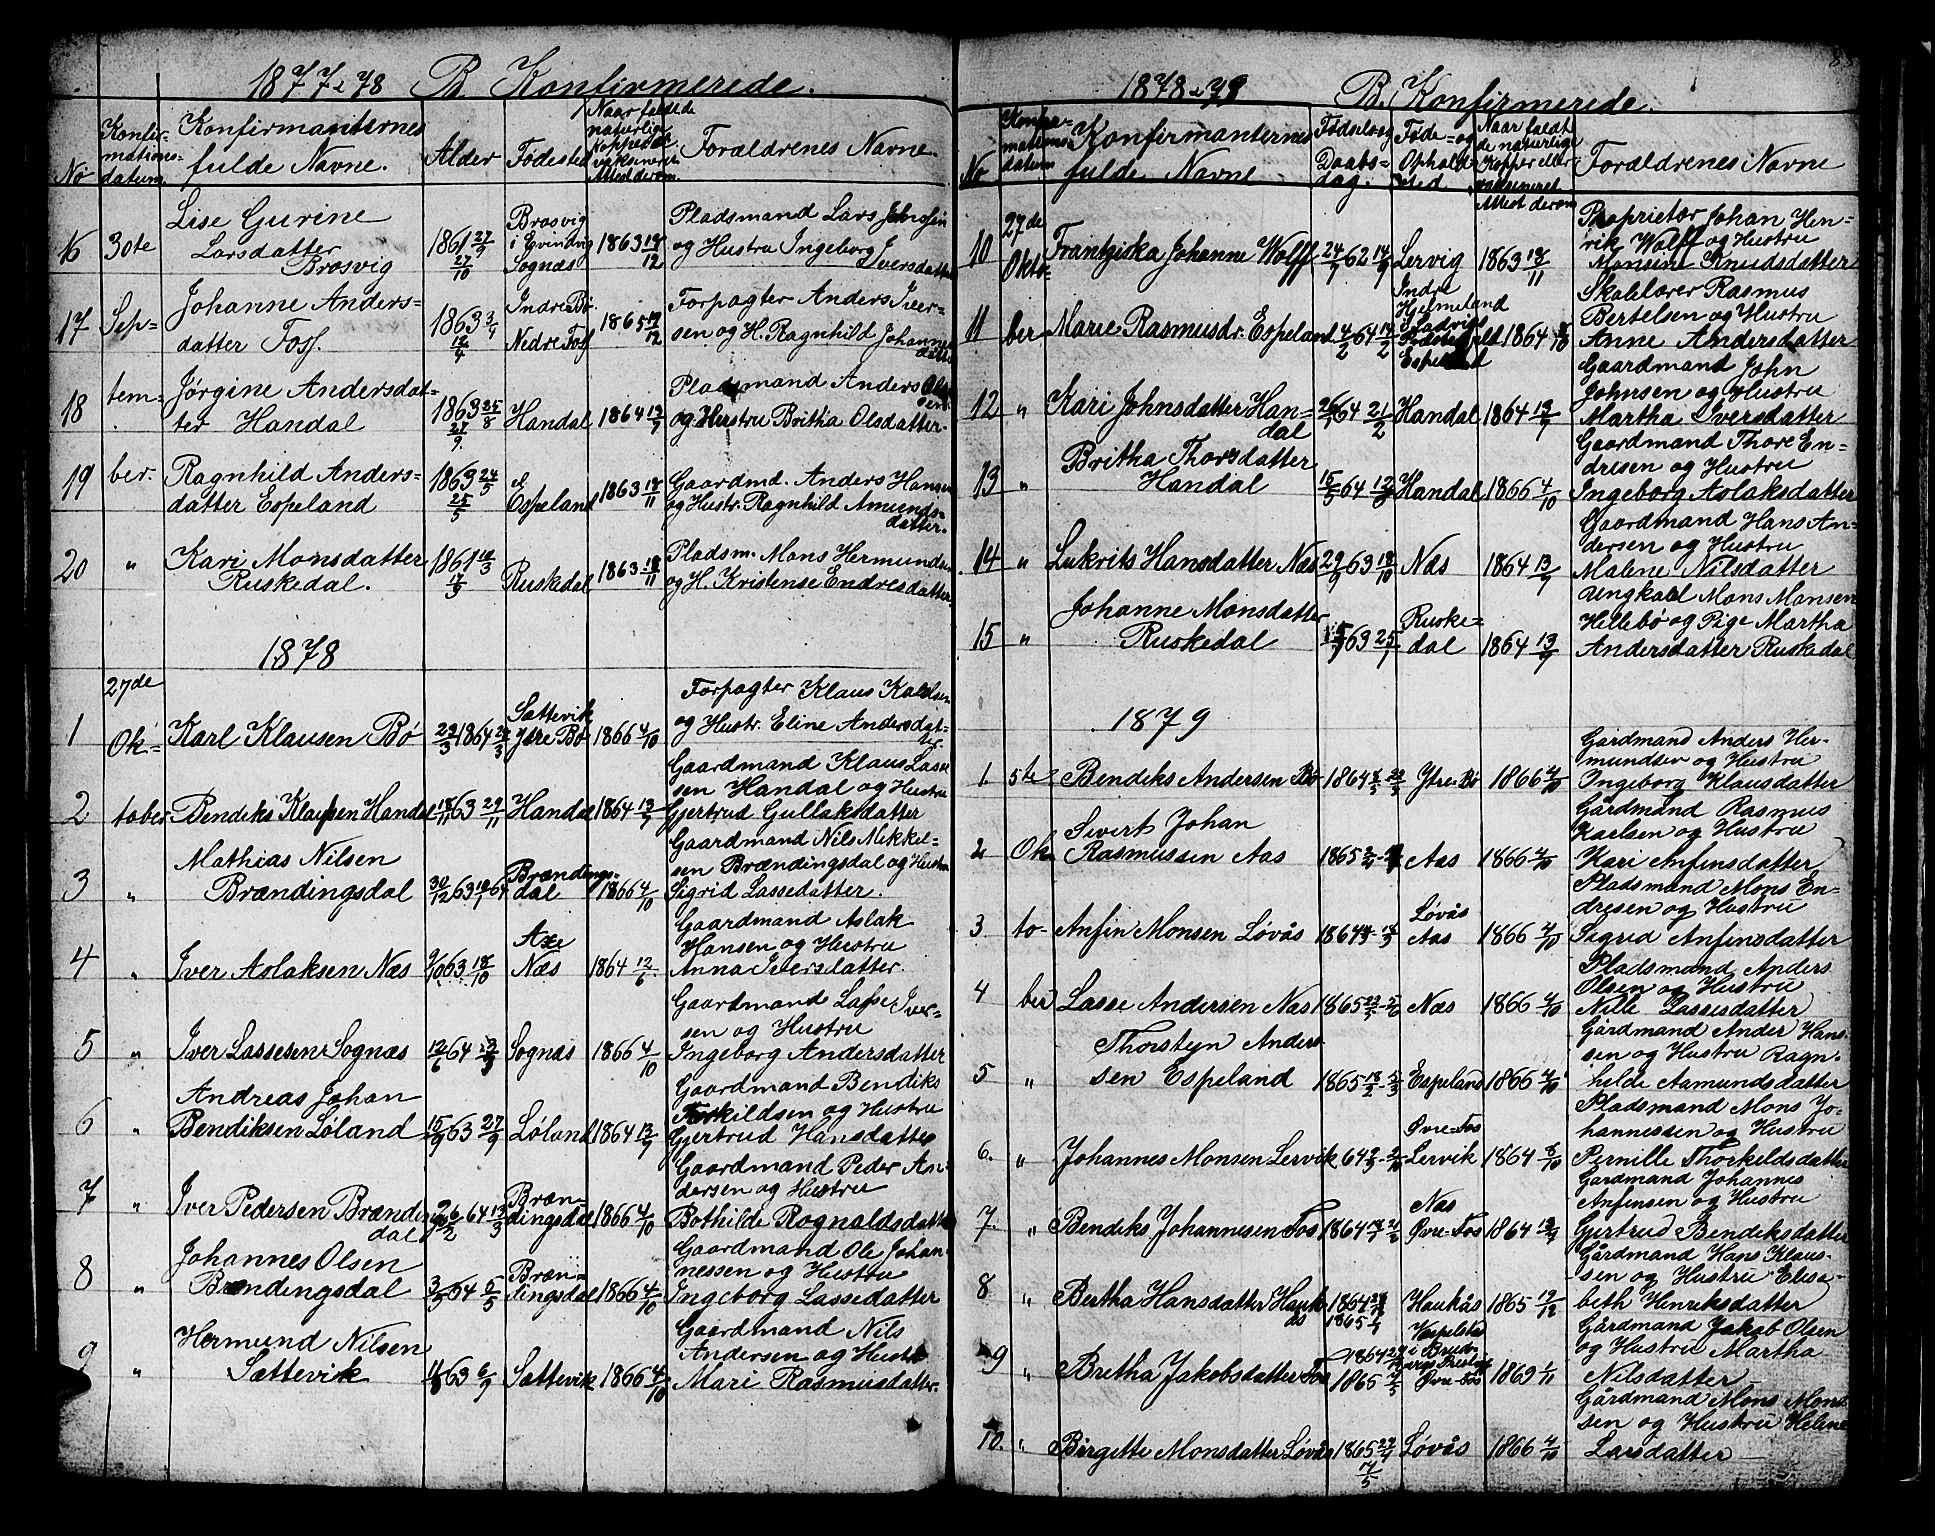 1877-78 B. Konfirmerede.
No
Konfir-
mations-
datum.
Konfirmanternes
fulde Navne.
Alder
Fødested
Naar faldt de
naturlige
Attest derom.
Forældrenes Navne.
16 30te
Lise Gurine
Larsdatter
Brosvig
1861 27/9
27/10
Brosvig
i Evindvig
Sognæs
1863 18/12
Pladsmand Lars Johnsen
og Hustru Ingeborg Iversdatter
17 Sep-
Johanne Anders-
datter Foss.
1863 3/4
12/4
Indre Bø
Nedre Fos
1865 19/12
Forpagter Anders Iver-
sen og H. Ragnhild Johannes
datter
18 tem-
Jørgine Andersdat-
ter Handal
1863 25/8
27/9
Handal
1864 13/9
Pladsmand Anders Ol-
sen
og Hustru Britha Olsdatter.
19 ber.
Ragnhild Anders-
datter Espeland
1863 24/5
25/5
Espeland
1863 18/11
Gaardmd. Anders Hansen
og Hustr. Ragnhild Amunds-
datter.
20 "
Kari Monsdatter
Ruskedal.
1861 10/3
17/3
Ruskedal
1863 18/11
Pladsm. Mons Hermunds
og H. Kristense Endresdatter
1878
1
27de
Ok-
Karl Klausen Bø
23/3 1864
Sættevik
Ytre Bø
1866 4/10
Forpagter Klaus Kaldsen
og Hustr. Eline Andersdat-
ter
2 tober
Bendiks Klausen Handal
18/11 63 29/11
Handal
1864 13/9
Gaardmand Klaus Lasse
sen Handal og Hustru
Gjertrud Gullaksdatter
3 "
Mathias Nilsen
Brændingsdal
30/12 63 10/1 64
Brændings-
dal
1866 4/10
Gaardmand Nils Mikkel-
sen Brændingsdal og Hustru
Sigrid Lassedatter.
4 "
Iver Aslaksen Næs
9/10 63 18/10
Næs
1864 12/6
Gaardmand Aslak
Hansen og Hustru
Anna Iversdatter.
5 "
Iver Lassesen Sognæs
12/6 64
Sognæs
1866 4/10
Gaardmand Lasse Iver-
sen og Hustru
Ingeborg Andersdatter
6 "
Andreas Johan
Bendiksen Løland
15/9 63 27/9
Løland
1864 13/9
Gaardmand Bendiks
Torkildsen og Hustru
Gjertrud Hansdatter
7 "
Iver Pedersen Brænden
dal
26/2 64 13/3
Bræn-
dingsdal
1866 4/10
Gaardmand Peder An-
dersen og Hustru
Bothilde Rognaldsdatter
8 "
Johannes Olsen
Brændingsdal
64 6/5
Bræn-
dingsdal
1866 4/10
Gaardmand Ole Johan-
nessen og Hustru
Ingeborg Lassedatter
9 "
Hermund Nilsen
Sættevik
63 6/9
Sættevik
1866 4/10
Gaardmand Nils
Andersen og Hustr
Mari Rasmusdatter.
88
1878-79 B. Konfirmerede.
No
datum
Konfirmanternes
fulde Navne
Fødsels og
Daabs-
dag.
Føde- og
Opholds
sted.
Naar faldt
de naturlige
Kopper eller
vaksineret
Attest derom
Forældrenes Navne
10
27de
Okto-
Frantziska Johanne Wolff
24/7 62 14/9
Lervig
1863 18/11
Proprietær Johan Hen-
rik Wolff og Hustru
Monsine Knudsdatter
11 ber
Marie Rasmusdr. Espeland
4/2 64 14/2
Indre
Hjelmeland
Espeland
1864
Skolelærer Rasmus
Bertelsen og Hustru
Anne Andersdatter
12 "
Kari Johnsdatter Han-
dal
26/1 64 21/2
Handal
1864 13/9
Gaardmand John
Johnsen og Hustru
Martha Iversdatter
13 "
Britha Thorsdatter
Handal
15/5 64
Handal
1866 4/10
Gaardmand Thore En-
dresen og Hustru
Ingeborg Aslaksdatter
14 "
Lukrits Hansdatter Næs
29/9 63 18/10
Næs
1864 13/9
Gaardmand Hans An-
dersen og Hustru
Malene Nilsdatter
15 "
Johanne Monsdatter
Ruskedal
63 25/7
Ruske-
dal
1864 13/9
Ungkarl Mons Monsen
Hillebø og Pige Martha
Andersdatter Ruskedal
1879
1 5te
Bendiks Andersen Bø
1864
Ytre Bø
1866 4/10
Gårdmand Anders Her-
mundsen og Hustru
Ingeborg Klausdatter
2 Ok
Sivert Johan
Rasmussen Aas
1865
Aas
1866 4/10
Gårdmand Rasmus
Karlsen og Hustru
Kari Anfinsdatter
3. to-
Anfin Monsen Løvås
1864
Løvås
Aas
1866 4/10
Pladsmand Mons En-
dresen og Hustru
Sigrid Anfinsdatter
4 ber
Lasse Andersen Næs
1865
Næs
1866 4/10
Pladsmand Anders
Olsen og Hustru
Nille Lassesdatter
5 "
Thorstejn Anders
sen Espeland
1865 13/2 - 5/3
Espeland
1866 4/10
Gårdmand Ander Hans-
sen og Hustru Ragn-
hilde Aamundsdatter
6. "
Johannes Monsen Lervik
64
Øvre-Fos
Lervik
1864
Pladsmand Mons Jo-
hannessen og Hustru
Pernille Thorkildsdatter
7. "
Bendiks Johannesen Fos
1864
Næs
Øvre-Fos
1864 13/9
Gårdmand Johannes
Anfinsen og Hustru
Gjertrud Bendiksdatter
8 "
Bertha Hansdatter Hauk
ås
1864
1865
Haukås
1865 19/12
Gårdmand Hans Klaus-
sen og Hustru Elisa-
beth Henriksdatter
9 "
Bretha Jakobsdatter Fos
1864
1865
Øvre-Fos
1869 1/11
Gårdmand Jakob Olsen
og Hustru Martha
Nilsdatter
10. "
Birgette Monsdatter Løvås
1865 24/4
7/5
Løvås
1866 4/10
Gårdmand Mons Mons-
sen og Hustru Helene
Larsdatter